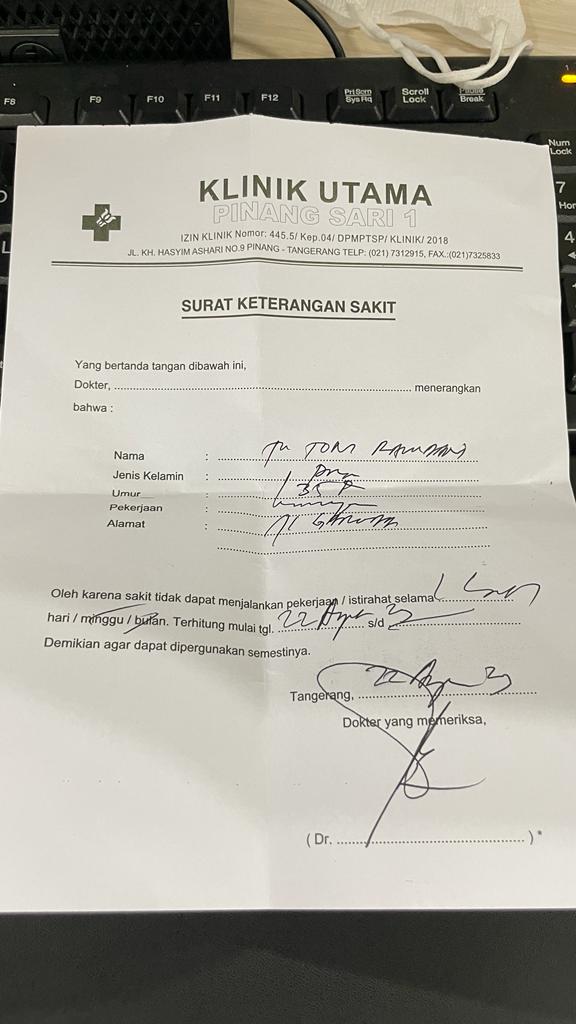 F8 F9 F10 F11 F12 PrtScrn SysRq Scroll Lock Pause Break
Num Lock
7
4
KLINIK UTAMA
PINANG SARI 1
IZIN KLINIK Nomor: 445.5/ Kep.04/ DPMPTSP/ KLINIK/ 2018
JL. KH. HASYIM ASHARI NO.9 PINANG - TANGERANG TELP: (021) 7312915, FAX.:(021)7325833
SURAT KETERANGAN SAKIT
Yang bertanda tangan dibawah ini,
Dokter, ........ menerangkan
bahwa :
Nama : Tn TONI
Jenis Kelamin :
Umur : 35
Pekerjaan :
Alamat :
Oleh karena sakit tidak dapat menjalankan pekerjaan / istirahat selama
hari / minggu / bulan. Terhitung mulai tgl. 22 s/d
Demikian agar dapat dipergunakan semestinya.
Tangerang, 22
Dokter yang memeriksa,
( Dr. ........ ) *